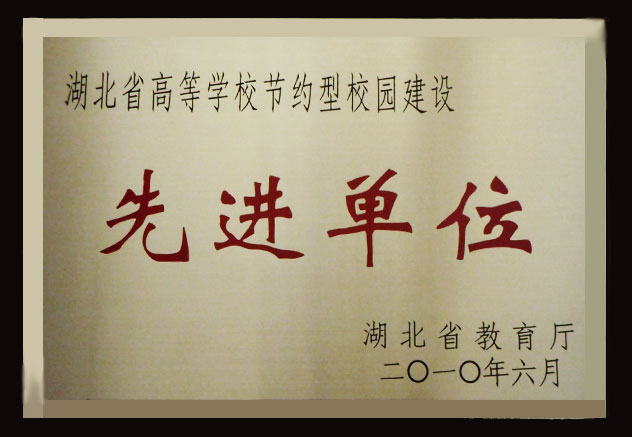 湖北省高等学校节约型校园建设
先进单位
湖北省教育厅
二〇一〇年六月